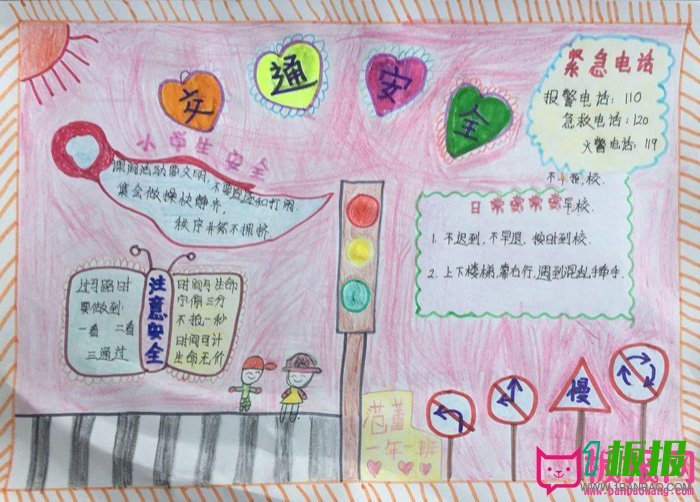 交通安全
紧急电话
报警电话：110
急救电话：120
火警电话：119
小学生安全
课间活动要文明，不要追逐和打闹
集会做操快静齐，
秩序井然不拥挤
1. 不迟到，不早退，按时到校．
2. 上下楼梯，靠右行，遇到混乱手牵手．
过马路时
要做到：
一看 二看
三通过
注意安全
时间与生命
宁停三分
不抢一秒
时间可计
生命无价
慢
一年一班
1板报
WWW.1BANBAO.COM
www.banbaowang.com